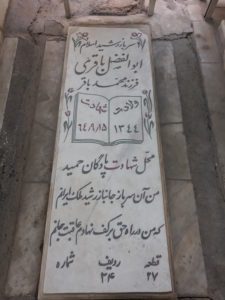 سرباز رشید اسلام
ابوالفضل باقرمی
فرزند محمد باقر
ولادت شهادت
۱۳۴۴ ۶۴/۸/۱۵
محل شهادت پادگان حمید
من آن سرباز جانباز رشید ملک ایرانم
که من در راه حق بر کف نهادم عاقبت جانم
قطعه ردیف شماره
۲۷ ۳۴